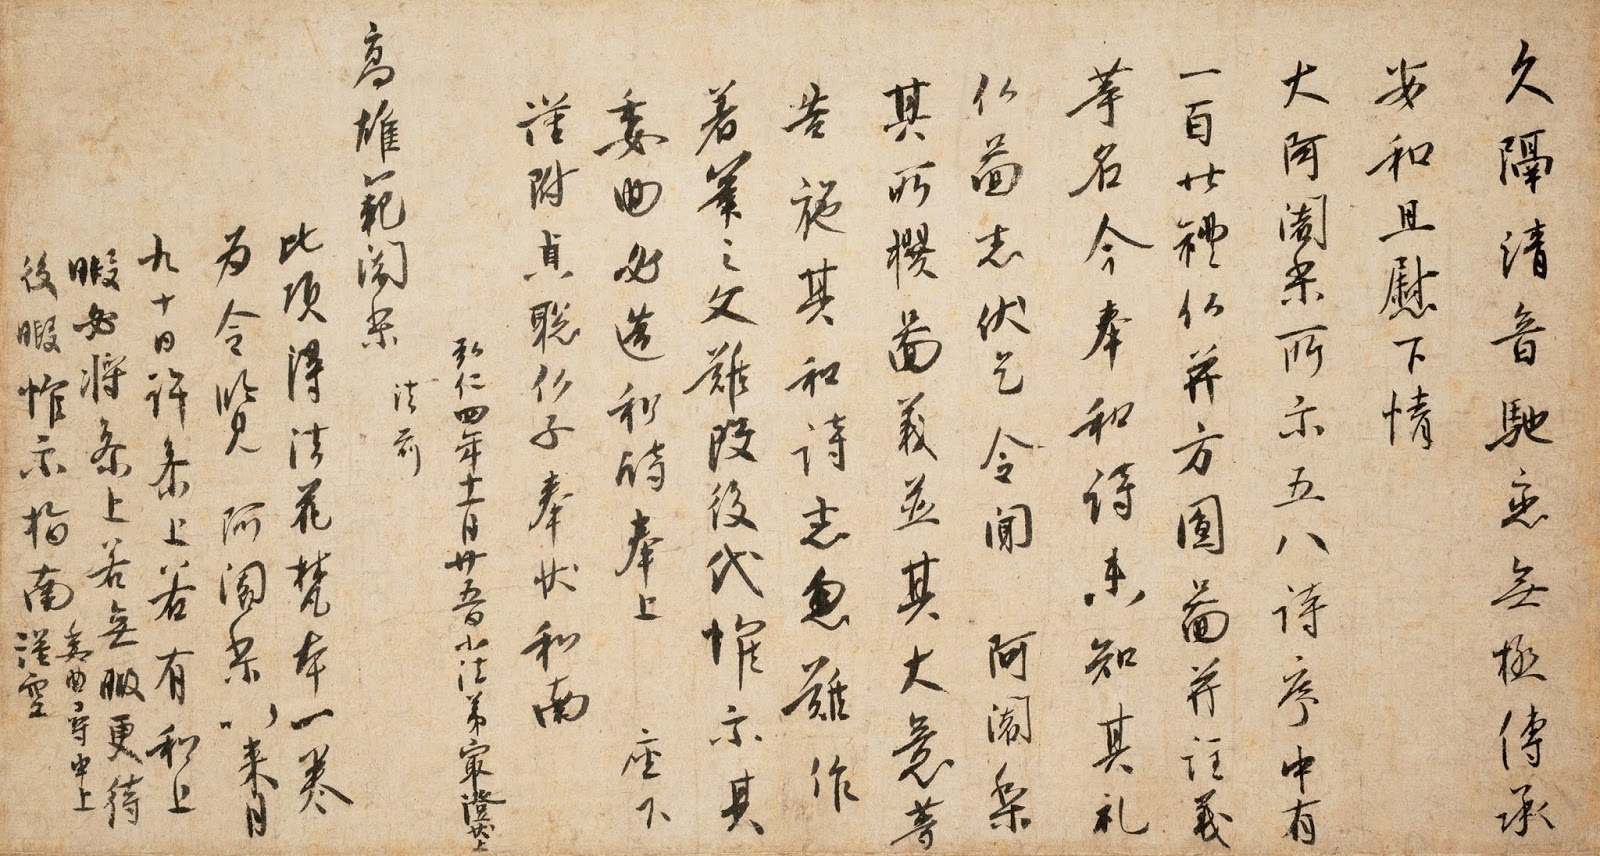 久隔清音馳恋無極傳承
安和且慰下情
大阿闍梨所示五八詩序中有
一百廿禮仏并方圓啚并註義
等名今奉和詩未知其礼
仏啚志伏乞令聞 阿闍梨
其所撰啚義並其大意等
告施其和詩忽難作
著筆之文難改後代惟示其
委曲必造和詩奉上 座下
謹附貞聡仏子奉状和南
弘仁四年十一月廿五日小法弟最澄状上
高雄範闍梨
法前
此頃得法花梵本一卷
為令覧 阿闍梨以来月
九十日許参上若有和上
暇必将参上若無暇更待
後暇惟示指南 委曲尋申上
謹空